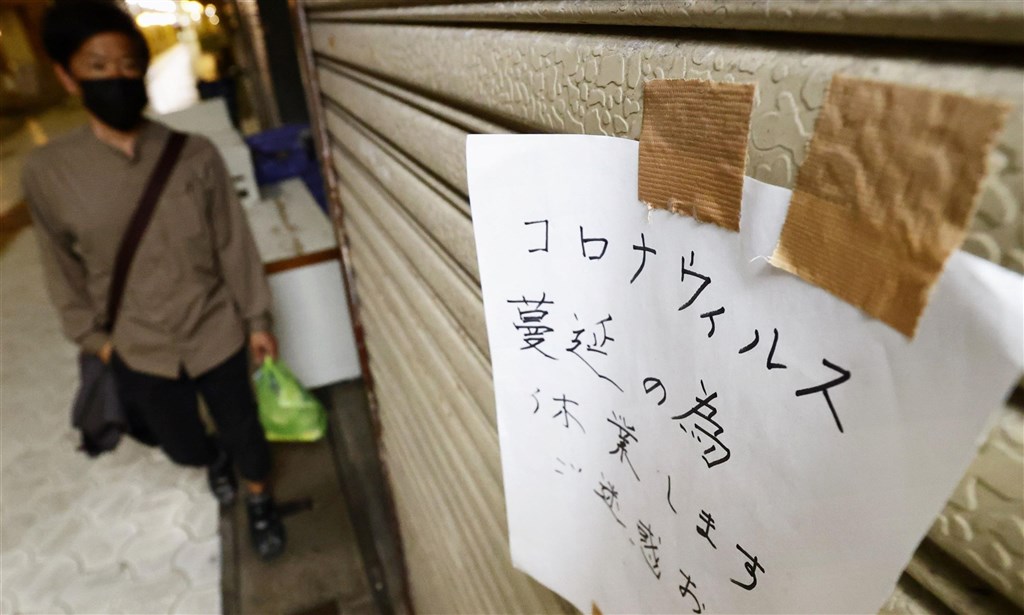 コロナヴィルス
蔓延の為
休業します
ご迷惑お